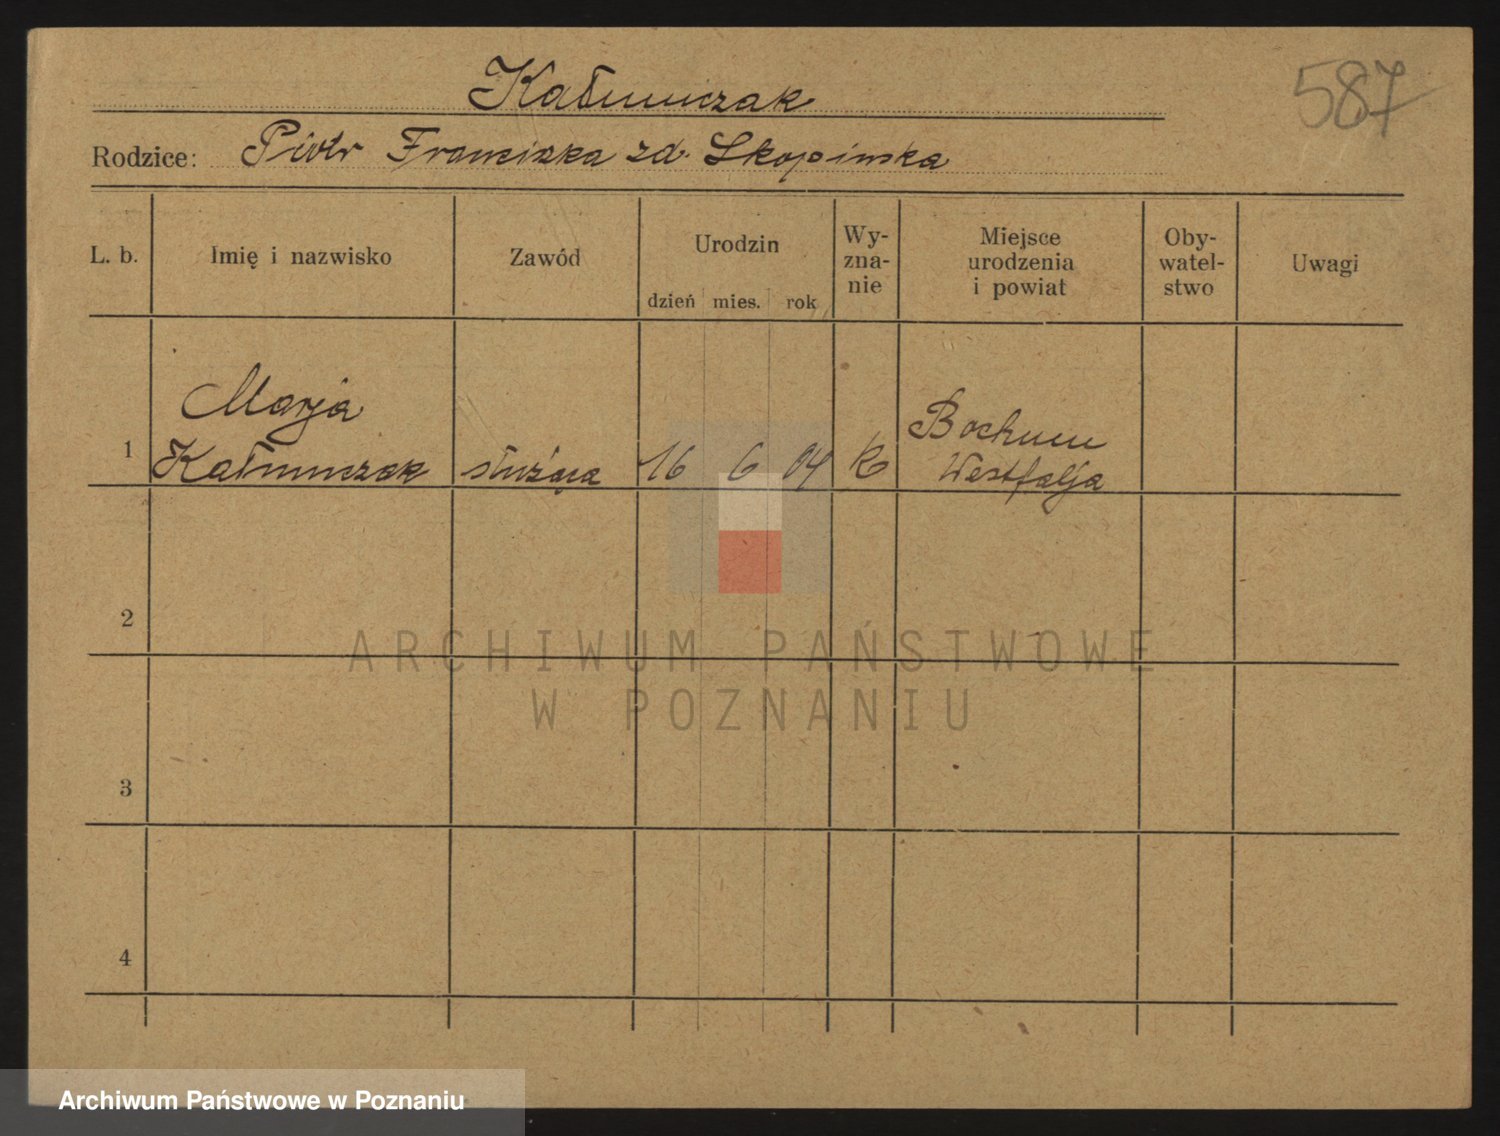 Kałmuczak
587
Rodzice: Piotr Franciszka zd. Skopinska
L. b.
Imię i nazwisko
Zawód
Urodzin
dzień mies. rok
Wy-
zna-
nie
Miejsce
urodzenia
i powiat
Oby-
watel-
stwo
Uwagi
1
Marja
Kałmuczak
służąca
16 6 04
k
Bochum
Westfalja
2
3
4
ARCHIWUM PAŃSTWOWE
W POZNANIU
Archiwum Państwowe w Poznaniu